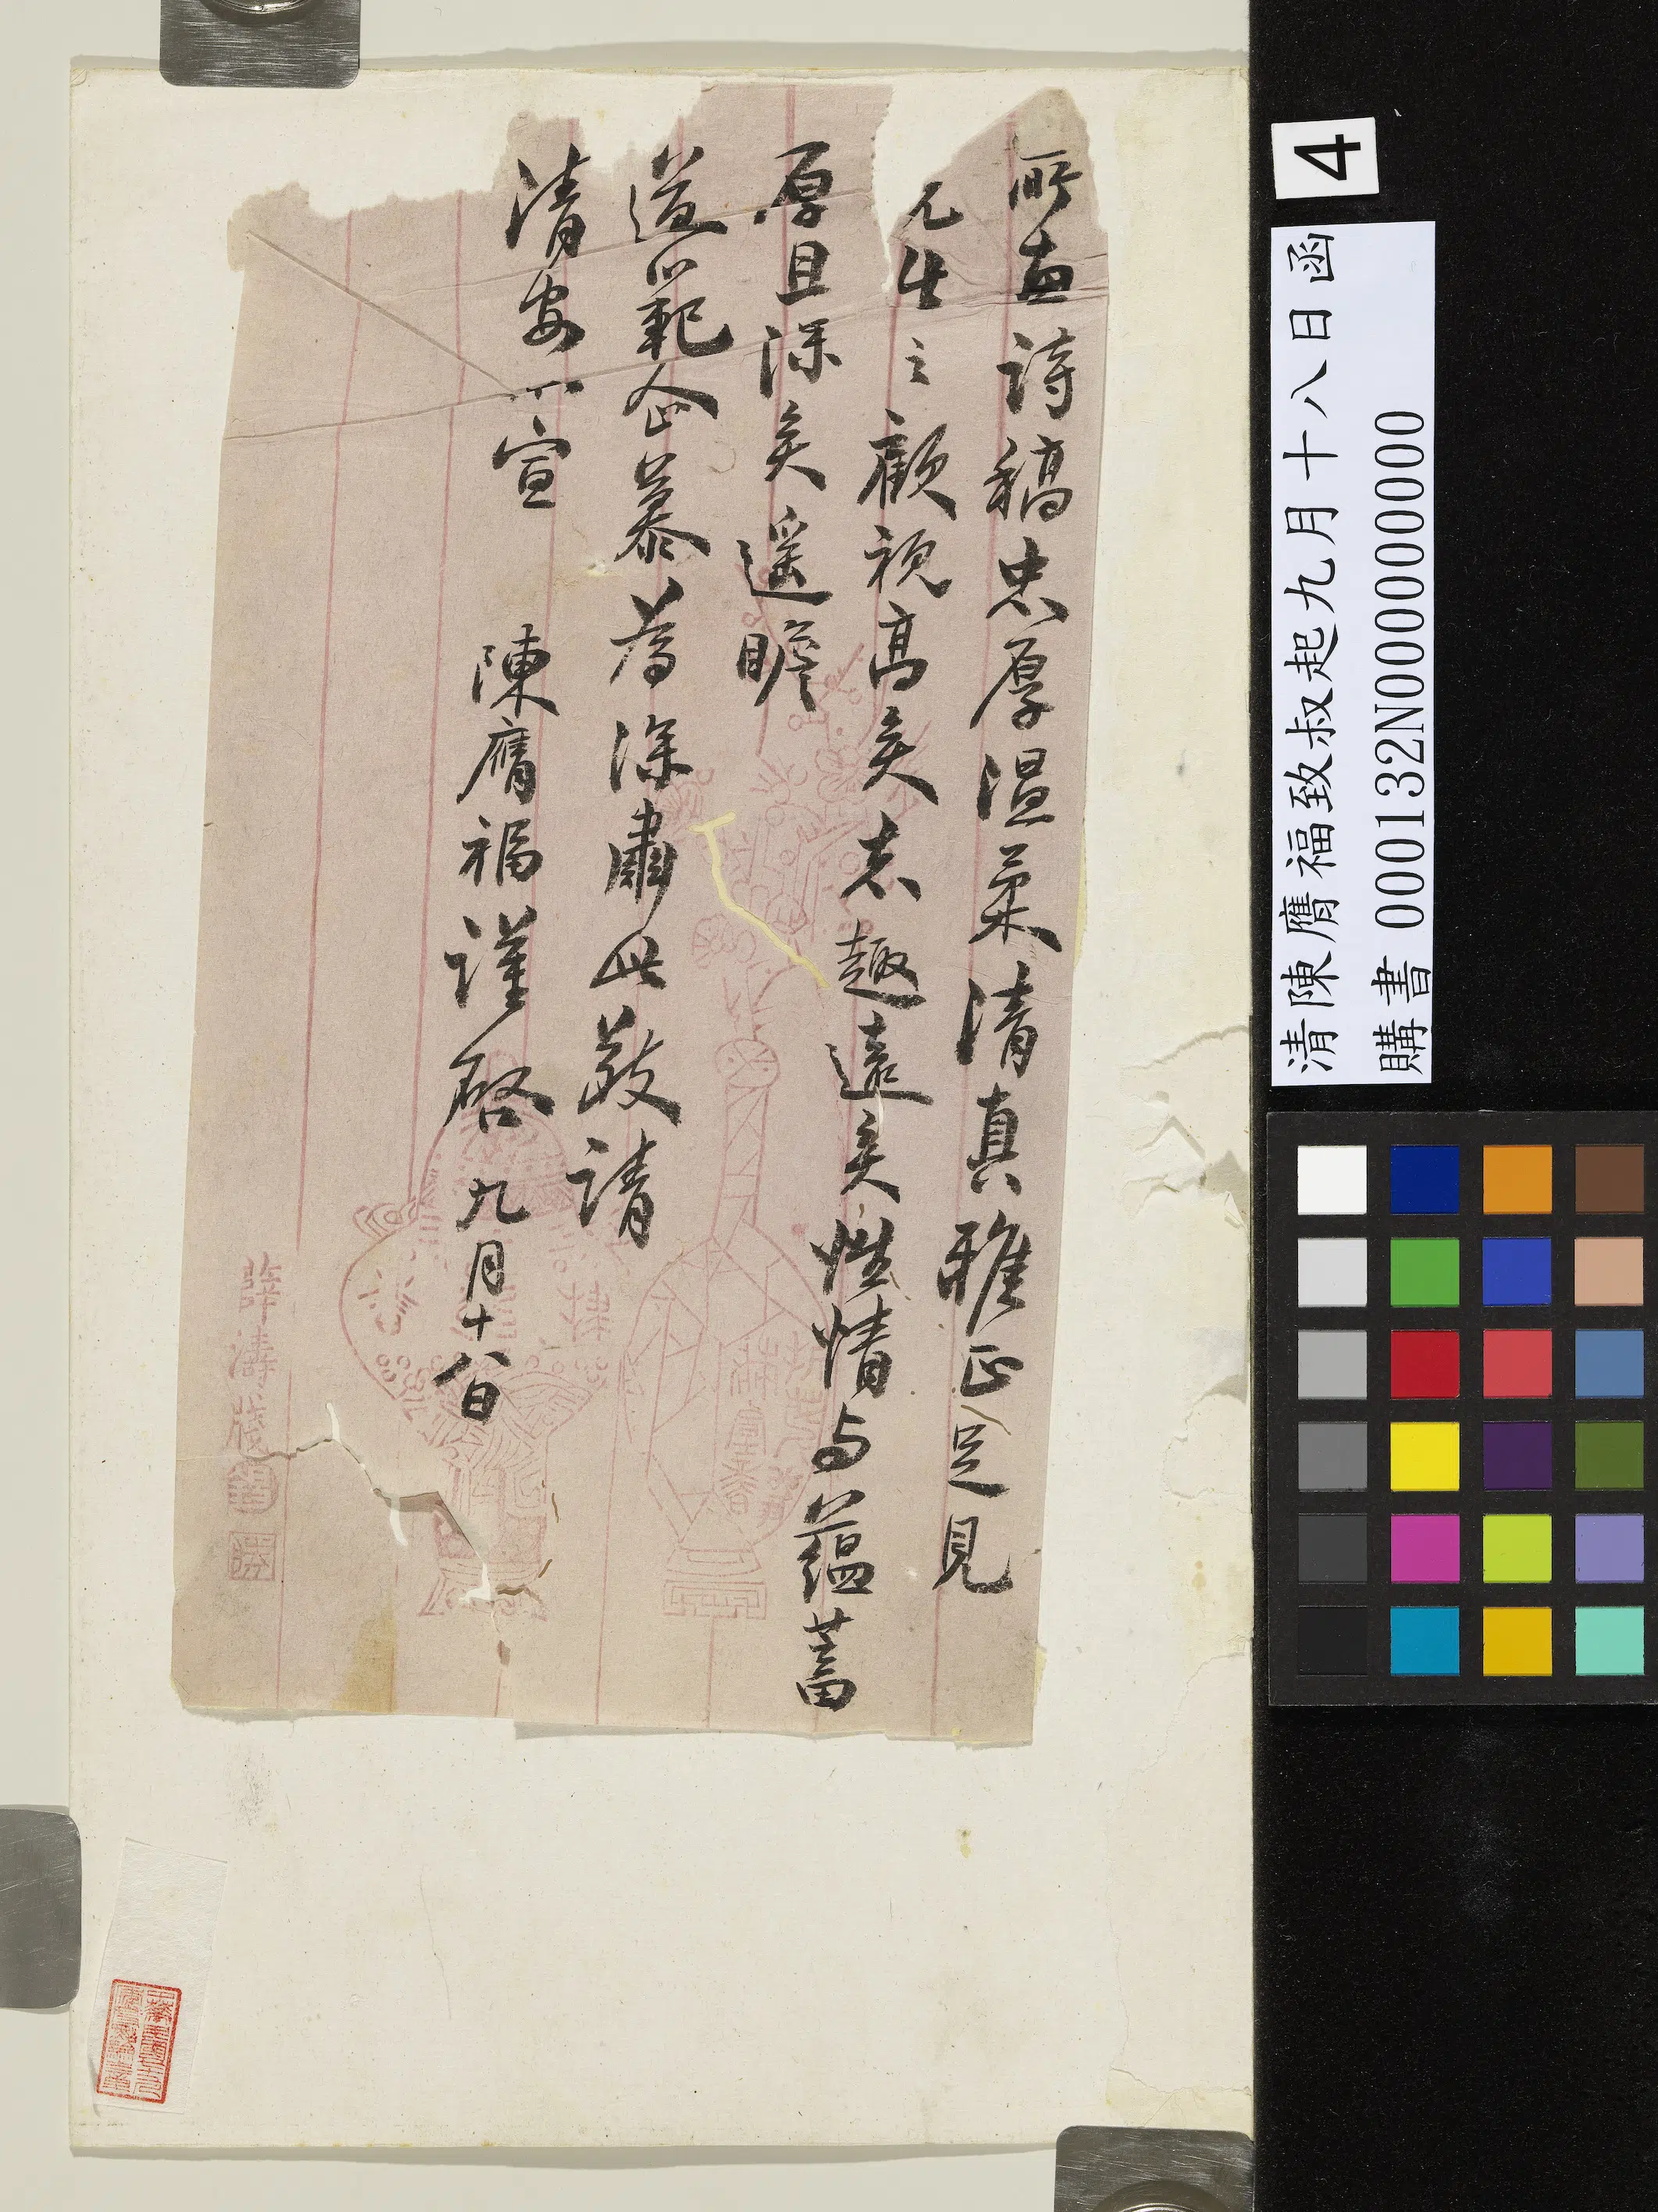 所惠詩稿忠厚溫柔清真雅正足見
先生之顧視高矣志趣遠矣性情与蘊蓄
厚且深矣遥瞻
道範企慕為深肅此敬請
清安不宣 陳膺福謹啓九月十八日
薛濤牋
4
清陳膺福致叔起九月十八日函
購書 000132N000000000